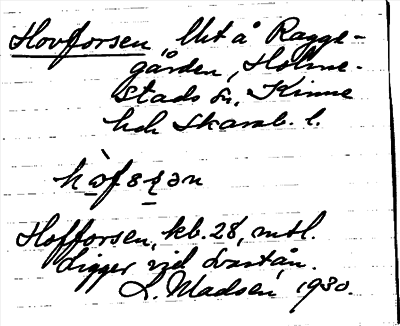 Hovforsen, lht å Ragge-
gården, Holme-
stads sn, Kinne
hd Skarab. l.
Hofforsen, kb. 28, mtl.
Ligger vid
L. Madsen 1930.